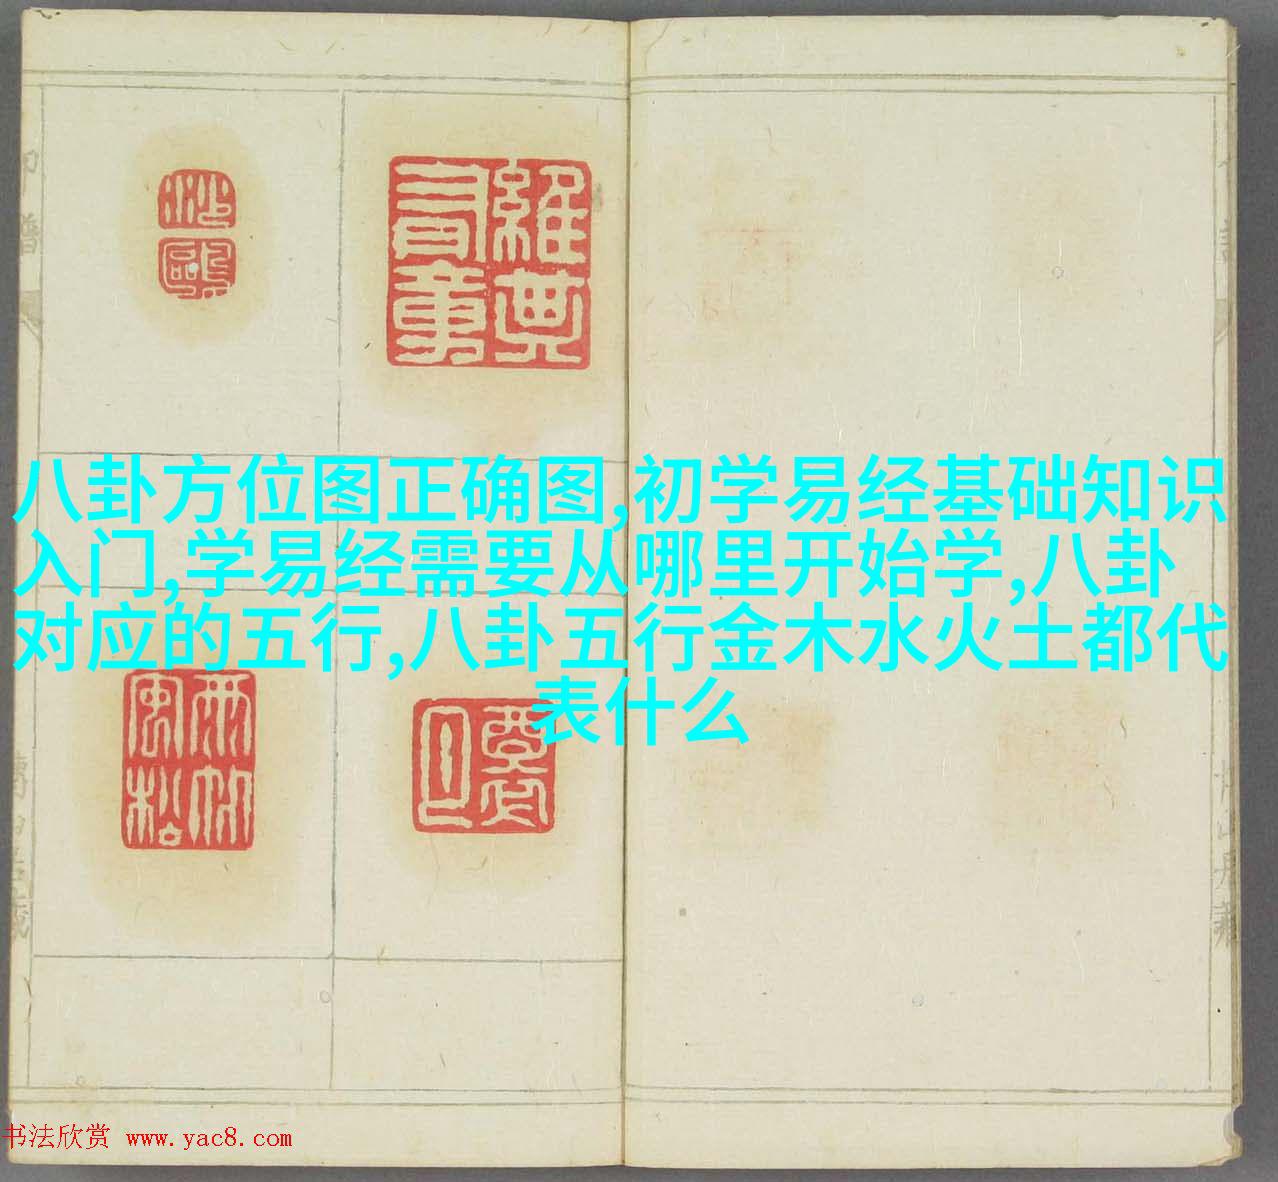 沙鷗
維典
八卦方位图正确图,初学易经基础知识
入门,学易经需要从哪里开始学,八卦
对应的五行,八卦五行金木水火土都代
表什么
雨竹
風松
书法欣赏 www.yac8.com